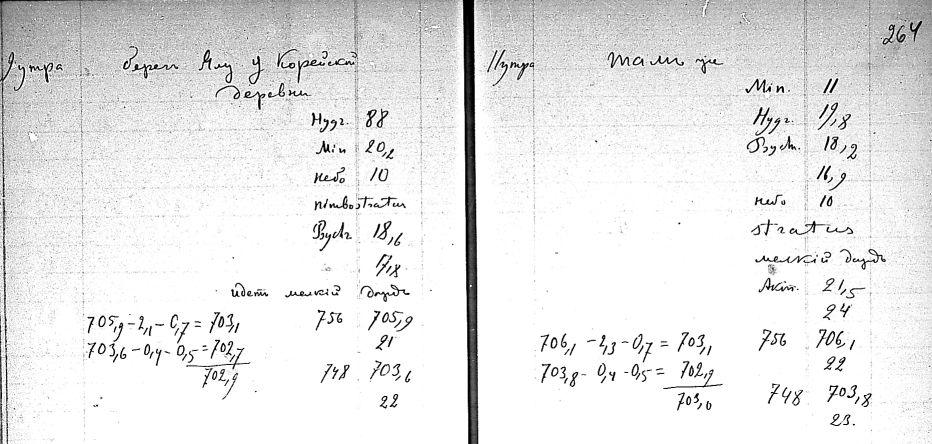 264
9 утра берегъ Ялу у Корейской
деревни
Hydr. 88
Min 20,2
небо 10
nimbostratus
Psychr 18,6
17,8
идетъ мелкій дождь
705,9 - 2,1 - 0,7 = 703,1 756 705,9
21
703,6 - 0,4 - 0,5 = 702,7
702,9 748 703,6
22
11 утра тамъ же
Min. 11
Hydr. 19,8
Psychr. 18,2
16,9
небо 10
stratus
мелкій дождь
21,5
24
706,1 - 2,3 - 0,7 = 703,1 756 706,1
22
703,8 - 0,4 - 0,5 = 702,9
703,0 748 703,8
23.